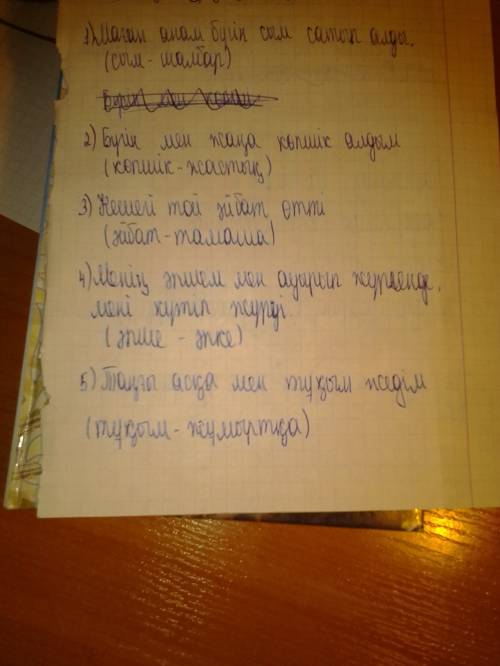 1) Маған анам бүгін сым сатып алды.
(сым - шалбар)
2) Бүгін мен жаңа көпшік алдым
(көпшік - жастық)
3) Кешегі той әйбат өтті
(әйбат - тамаша)
4) Менің әпшем мен ауырып жүргенде,
мені күтіп жүрді.
(әпше - әпке)
5) Таңғы асқа мен тұқым жедім
(тұқым - жұмыртқа)